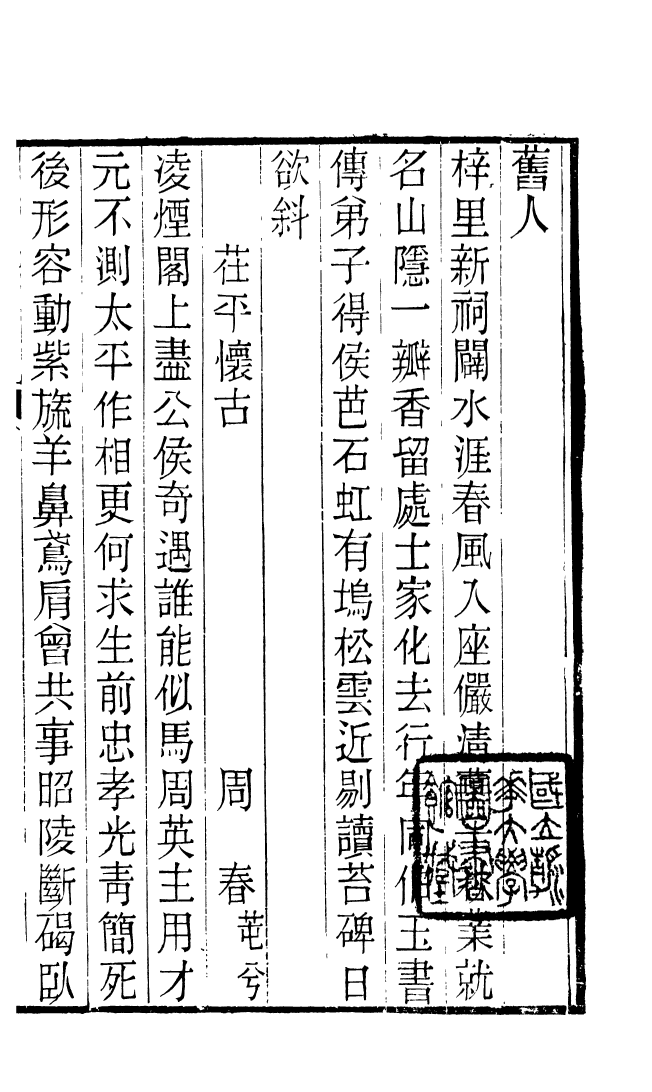 舊人
梓里新祠闢水涯春風入座儼清業就
名山隱一瓣香留處士家化去行年同伯玉書
傳弟子得侯芭石虹有塢松雲近剔讀苔碑日
欲斜
茌平懷古　周　春芚兮
凌煙閣上盡公侯奇遇誰能似馬周英主用才
元不測太平作相更何求生前忠孝光青簡死
後形容動紫旒羊鼻鳶肩曾共事昭陵斷碣臥
國立清
華大學